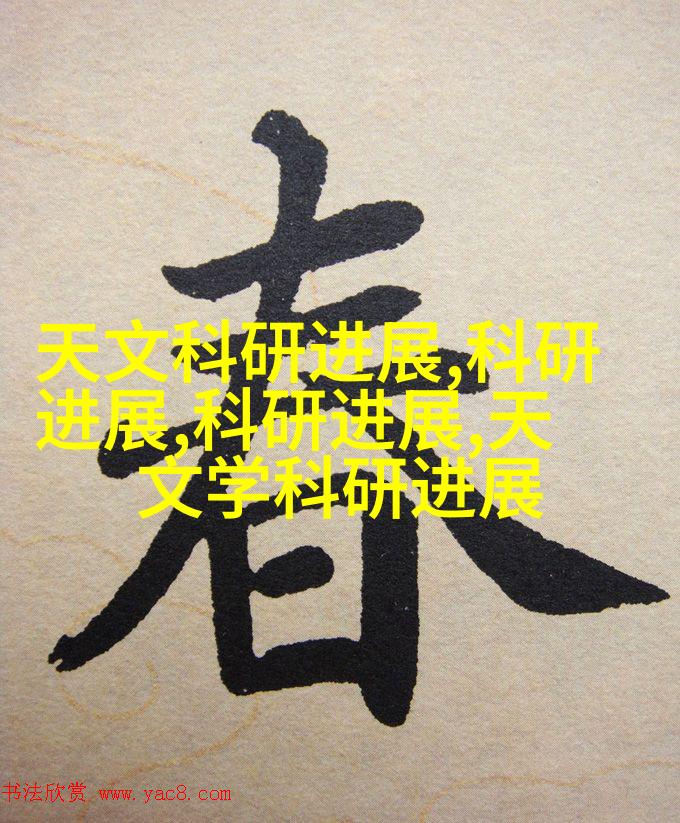 春
天文科研进展,科研
进展,科研进展,天
文学科研进展
书法欣赏 www.yac8.com